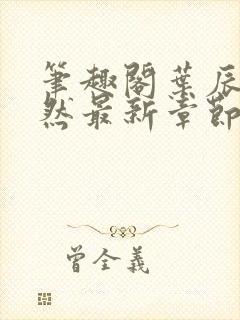 筆趣閣葉辰
然最新章節
曾全義